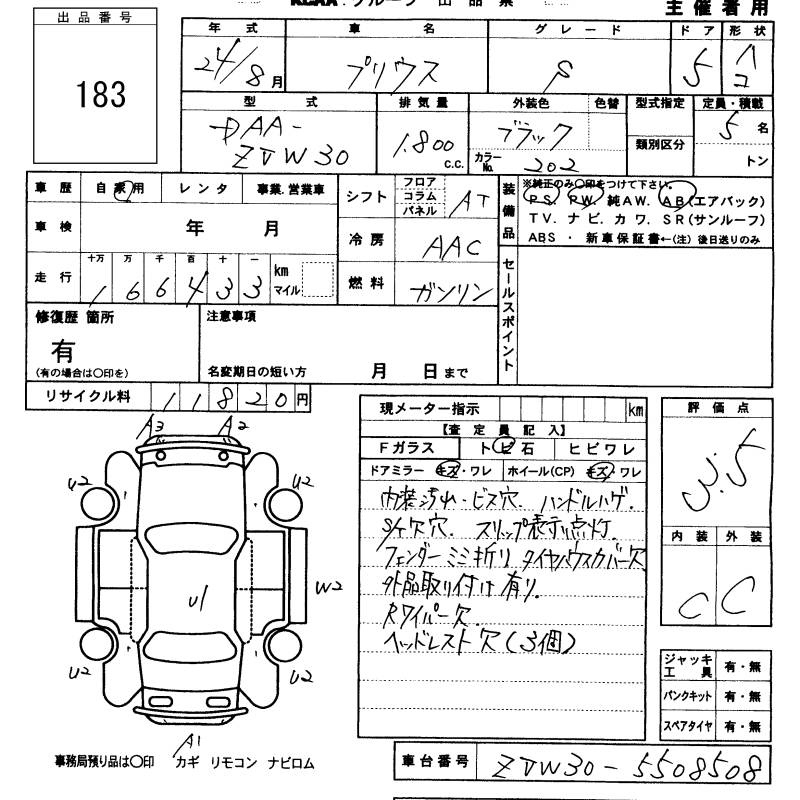 KCAA.グループ 出 品 票
主催者用
出品番号
183
年式 車名 グレード ドア 形状
24/8月 プリウス S 5 ハコ
型式 排気量 外装色 色替 型式指定 定員・積載
DAA-
ZVW30
1.800 c.c.
ブラック
カラーNo. 202
類別区分
5名
トン
車歴 自家用 レンタ 事業.営業車
車検 年 月
走行 十万 万 千 百 十 一
1 6 6 4 3 3 km マイル
シフト フロア コラム パネル AT
冷房 AAC
燃料 ガソリン
装備品
※純正のみ〇印をつけて下さい。
PS. PW. 純AW. AB(エアバック)
TV. ナビ. カワ. SR(サンルーフ)
ABS ・ 新車保証書←(注) 後日送りのみ
セールスポイント
修復歴 箇所
有
(有の場合は〇印を)
注意事項
名変期日の短い方 月 日まで
リサイクル料 1 1 8 2 0 円
現メーター指示 km
【査定員記入】
Fガラス トビ石 ヒビワレ
ドアミラー キズ・ワレ ホイール(CP) キズ・ワレ
内装汚れ・ビス穴. ハンドルハゲ.
S/ケ欠穴. スリップ表示点灯.
フェンダーミミ折り タイヤハウスカバー欠
外品取り付け有り.
Rワイパー欠.
ヘッドレスト欠(3個)
評価点
3.5
内装 外装
C C
A3 A2
U2 U2
U1
W2
U2 U2
A1
ジャッキ工具 有・無
パンクキット 有・無
スペアタイヤ 有・無
事務局預り品は〇印 カギ リモコン ナビロム
車台番号 ZVW30-5508508